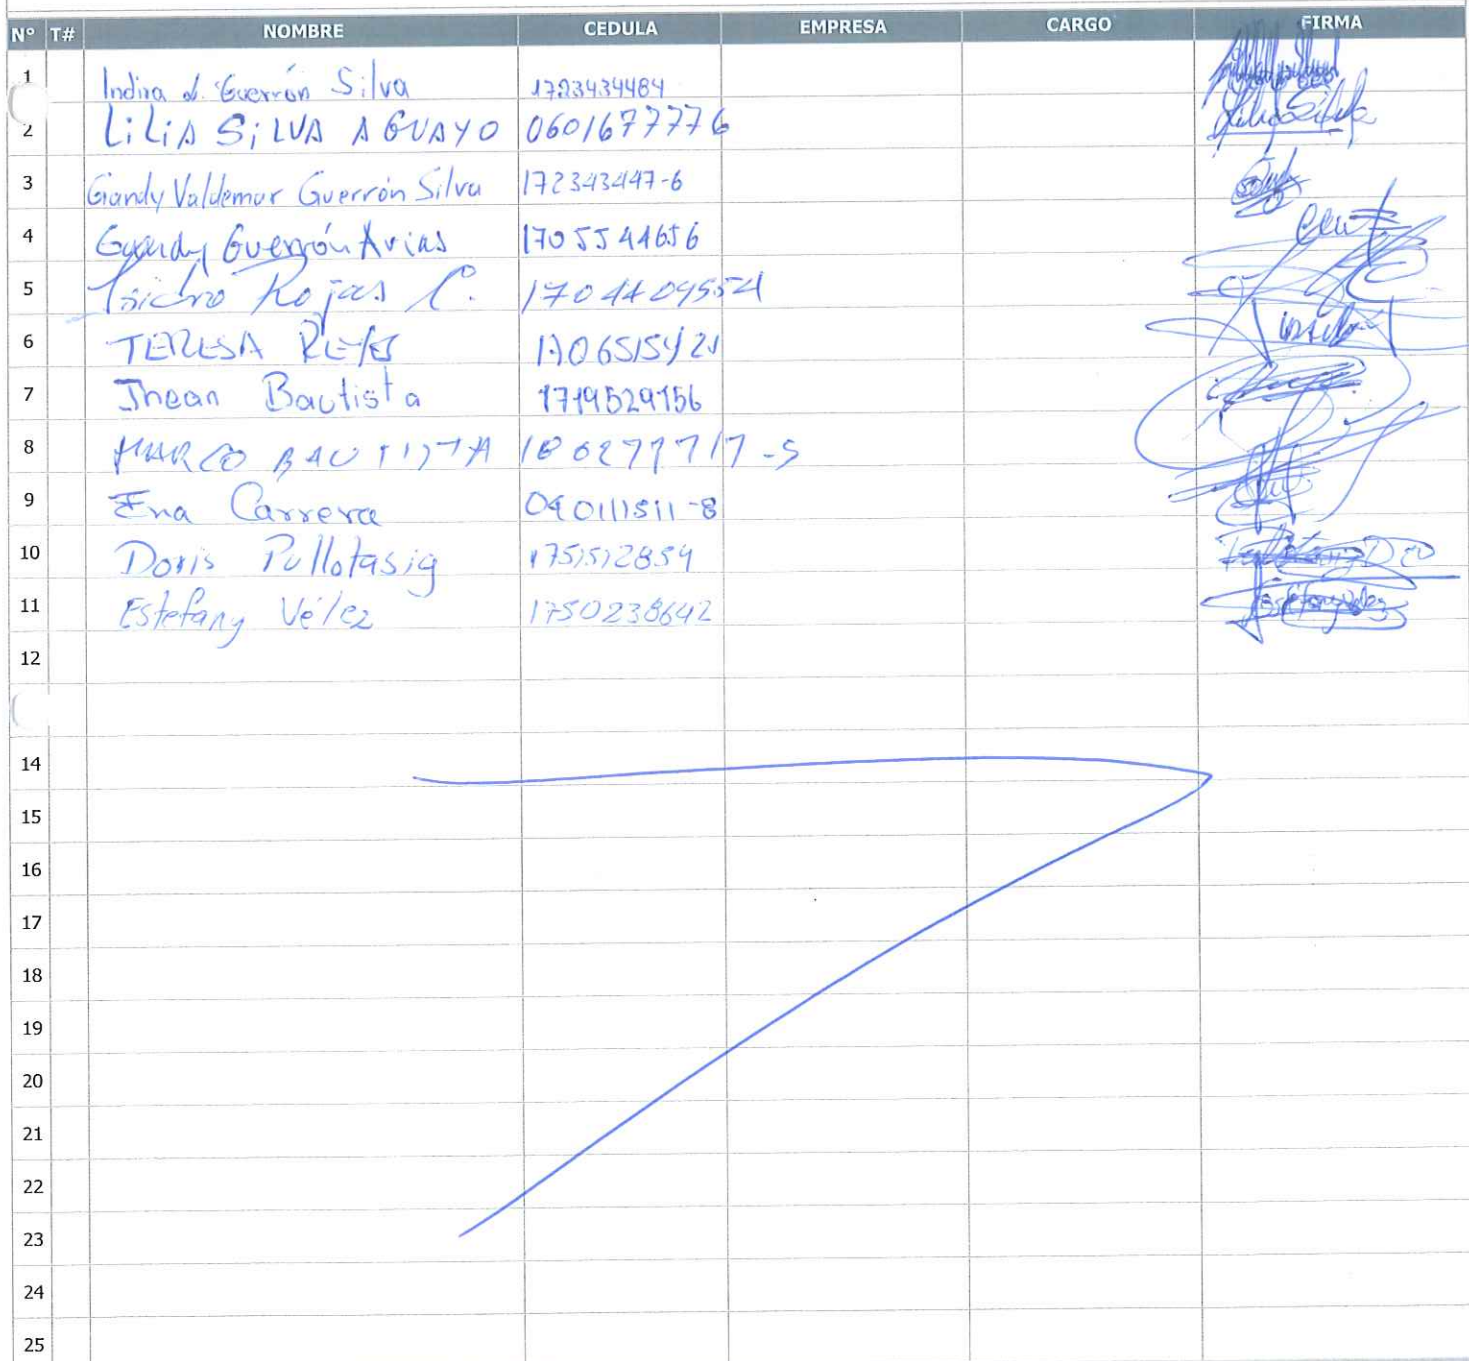 N° T# NOMBRE CEDULA EMPRESA CARGO FIRMA
1 Indira d. Guerrón Silva 1723434484
2 LiLiA SiLVA AGUAYO 0601677776
3 Giandy Valdemar Guerrón Silva 172343447-6
4 Guerrón Arias 1705544656
5 Isidro Rojas C. 1704409554
6 TERESA REYES
7 Jhean Bautista 1719529156
8 MARCO BAUTISTA
9 Ena Carrera 040111511-8
10 Doris Pullotasig
11 Estefany Vélez 1750238642
12
14
15
16
17
18
19
20
21
22
23
24
25